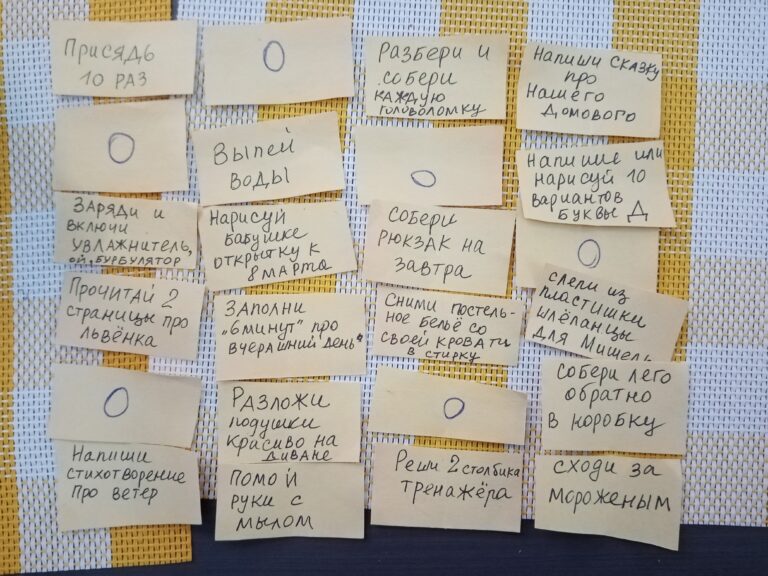 Присядь
10 раз
О
Разбери и
собери
каждую
головоломку
Напиши сказку
про
нашего
домового
О
Выпей
воды
О
Напиши или
нарисуй 10
вариантов
буквы Д
Заряди и
включи
увлажнитель,
ой, бурбулятор
Нарисуй
бабушке
открытку к
8 марта
Собери
рюкзак на
завтра
О
Прочитай 2
страницы про
львёнка
Заполни
„6 минут" про
вчерашний день
Сними постель-
ное бельё со
своей кровати
в стирку
Слепи из
пластишки
шлёпанцы
для Мишель
О
Разложи
подушки
красиво на
диване
О
Собери лего
обратно
в коробку
Напиши
стихотворение
про ветер
Помой
руки с
мылом
Реши 2 столбика
тренажёра
Сходи за
мороженым